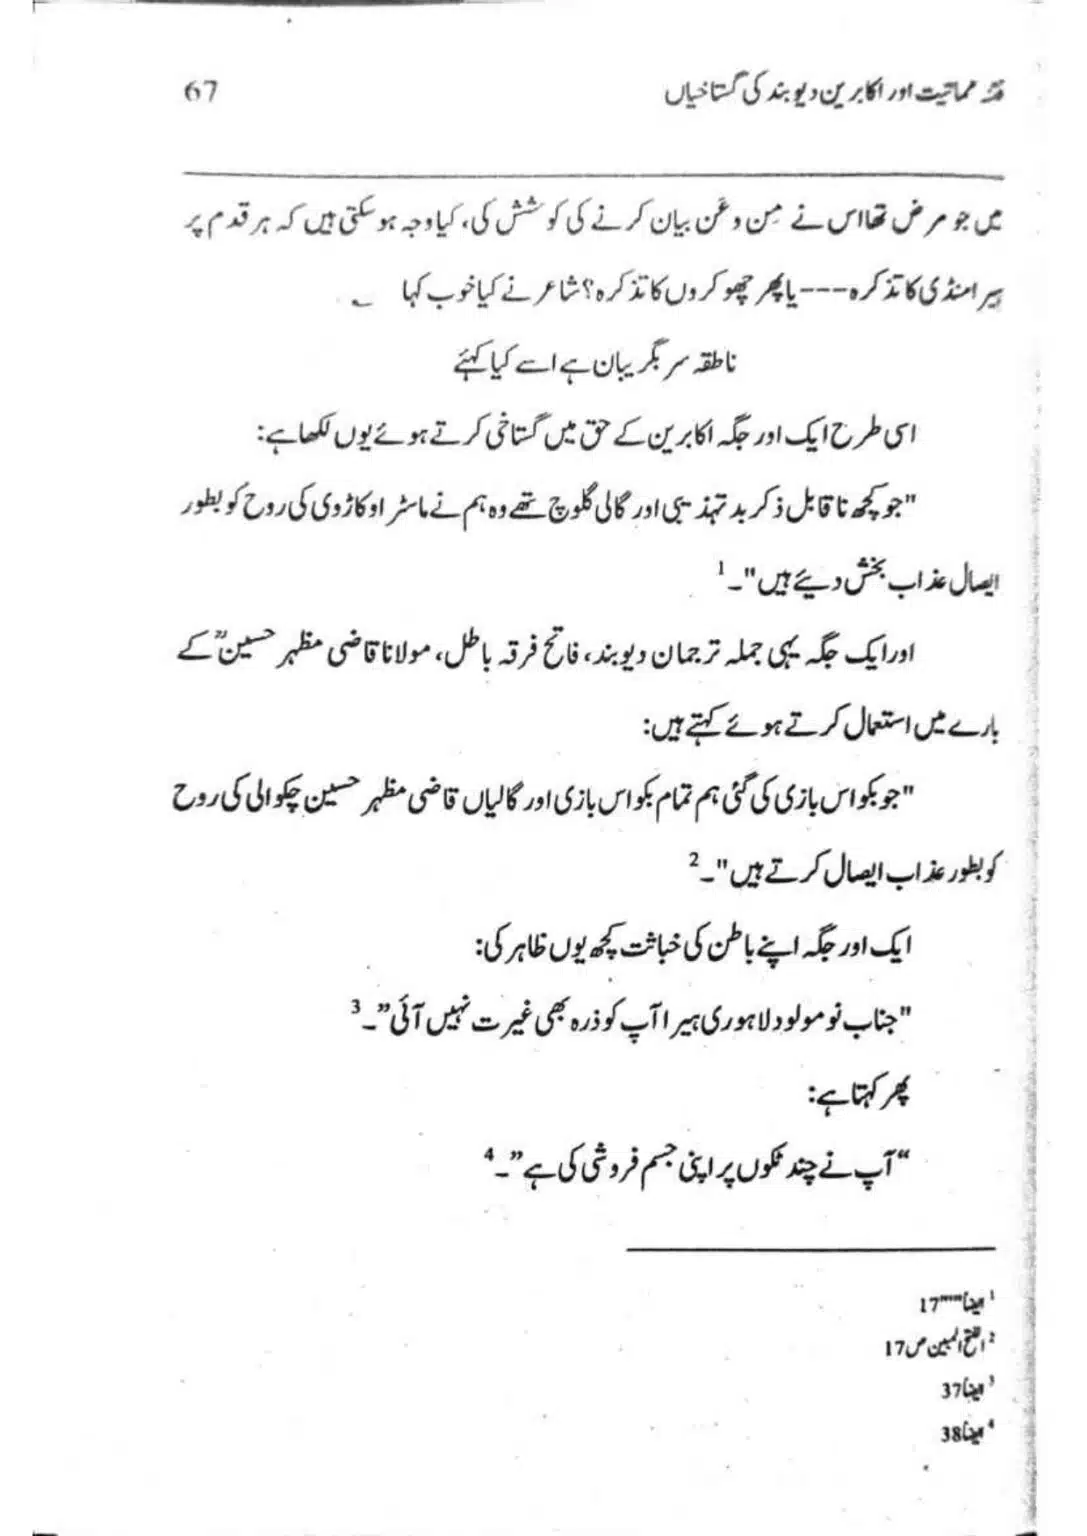 فتنہ مماتیت اور اکابرین دیوبند کی گستاخیاں 67
میں جو مرض تھا اس نے مِن و عَن بیان کرنے کی کوشش کی، کیا وجہ ہو سکتی ہیں کہ ہر قدم پر
ہیرا منڈی کا تذکرہ --- یا پھر چھوکروں کا تذکرہ؟ شاعر نے کیا خوب کہا ؎
ناطقہ سر بگریبان ہے اسے کیا کہئے
اسی طرح ایک اور جگہ اکابرین کے حق میں گستاخی کرتے ہوئے یوں لکھا ہے:
"جو کچھ ناقابل ذکر بد تہذیبی اور گالی گلوچ تھے وہ ہم نے ماسٹر اوکاڑوی کی روح کو بطور
ایصال عذاب بخش دیئے ہیں"۔1
اور ایک جگہ یہی جملہ ترجمان دیوبند، فاتح فرقہ باطل، مولانا قاضی مظہر حسینؒ کے
بارے میں استعمال کرتے ہوئے کہتے ہیں:
"جو بکواس بازی کی گئی ہم تمام بکواس بازی اور گالیاں قاضی مظہر حسین چکوالی کی روح
کو بطور عذاب ایصال کرتے ہیں"۔2
ایک اور جگہ اپنے باطن کی خباثت کچھ یوں ظاہر کی:
"جناب نومولود لاہوری ہیرا آپ کو ذرہ بھی غیرت نہیں آئی”۔3
پھر کہتا ہے:
“آپ نے چند ٹکوں پر اپنی جسم فروشی کی ہے”۔4
1 ایضاً 17
2 الفتح المبین ص 17
3 ایضاً 37
4 ایضاً 38